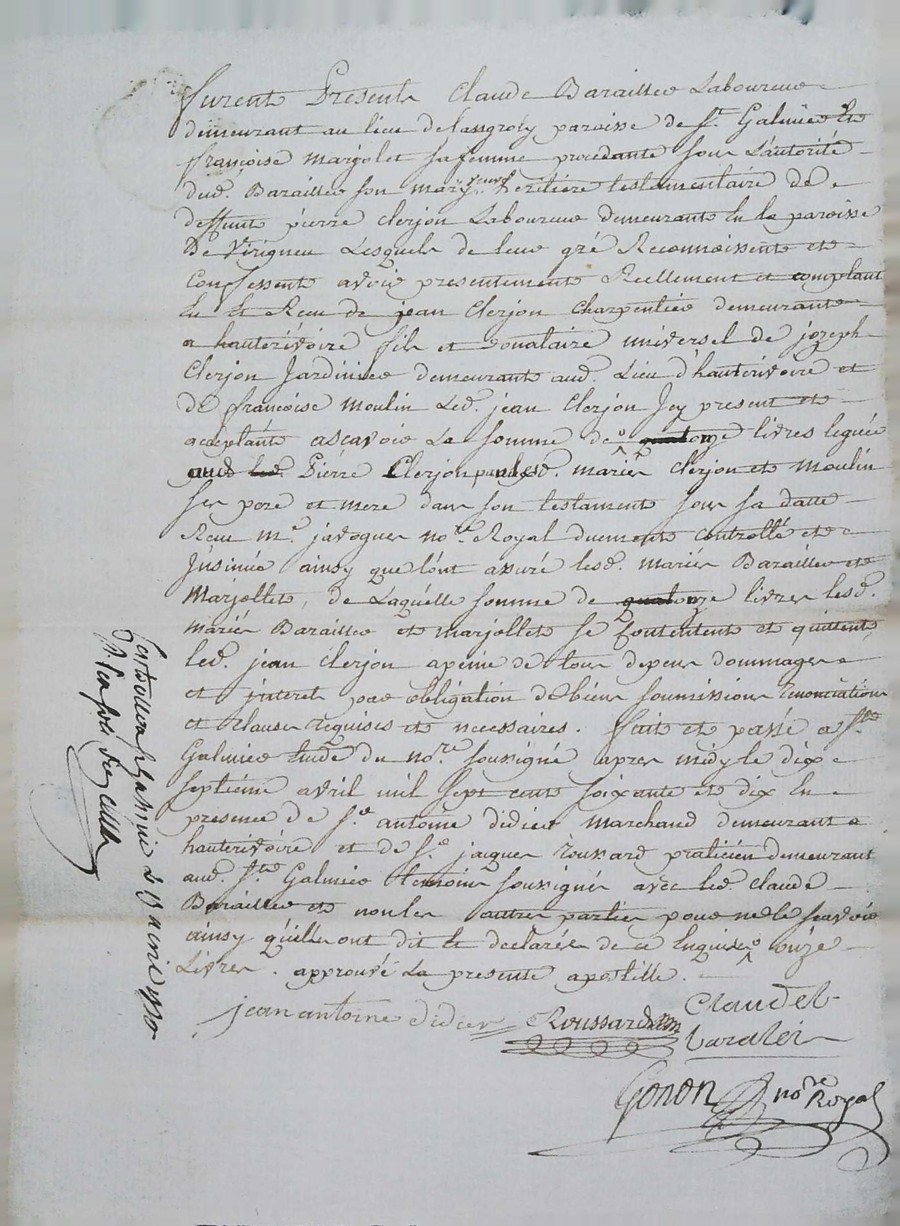 furent Presents Claude Barailler Laboureur
demeurant au lieu de paroisse de St. Galmier et
françoise marjolet sa femme procedante sous L'autorité
dud. Barailler son mary veuve heritiere testamentaire de
deffunt pierre Clerjon Laboureur demeurant en la paroisse
De Virigneu Lesquels de leur gré Reconnoissent et
Confessent avoir presentement Reellement et comptant
eu et Recu de jean Clerjon Charpentier demeurant
a hauterivoire fils et donataire universel de jozeph
Clerjon Jardinier demeurant aud. Lieu d'hauterivoire et
de françoise moulin Led. jean Clerjon Jcy present et
acceptant ascavoir La somme de livres leguée
aud. Pierre Clerjon par lesd. mariés Clerjon et Moulin
ses pere et mere dans son testament sous sa datte
Recu me. javogues nore. Royal duement controllé et
Jnsinué ainsy que l'ont assuré lesd. mariés Barailler et
Marjollet, de Laquelle somme de livres lesd.
mariés Barailler et marjollet se Contentent et quittent
led. jean Clerjon a peine de tous depens dommages
et jnterets par obligation de biens soumissions renonciations
et clauses requises et necessaires. fait et passé a St.
Galmier Etude du nore. soussigné apres midy le dix
septieme avril mil sept cent soixante et dix En
presence de Sr. antoine didier Marchand demeurant a
hauterivoire et de Sr. jacques roussard praticien demeurant
aud. St. Galmier temoins soussignés avec led. Claude
Barailler et non les autres parties pour ne le scavoir
ainsy qu'elles ont dit et declarées de ce Enquises onze
Livres. approuvé La presente apostille.
jean antoine didier Roussard Claude
baralier
Gonon nore Royal